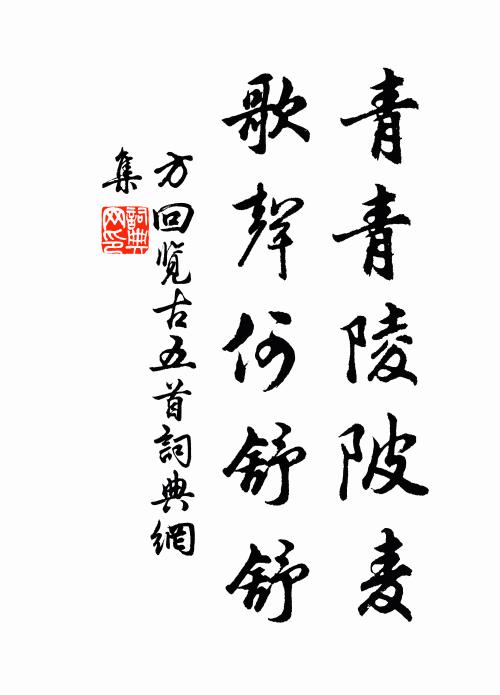 青青陵陂麦
歌聲何舒舒
方回览古五首詞典網
集
詞典網印